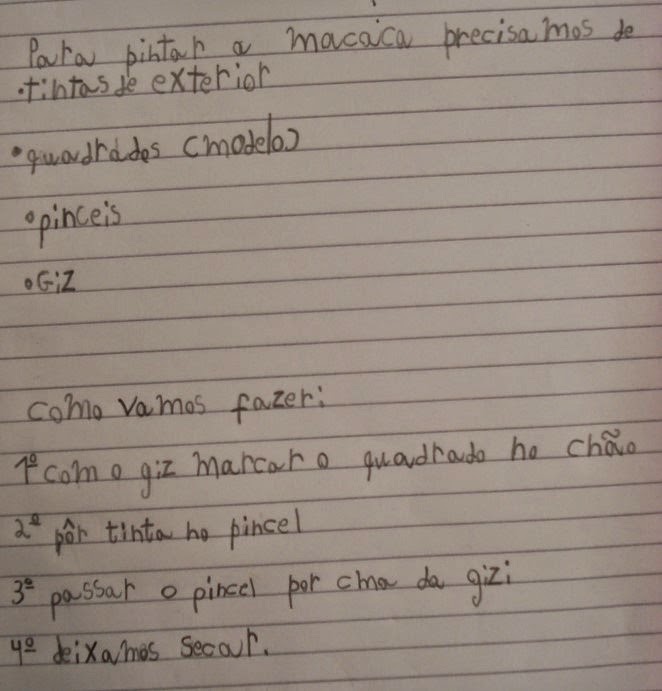 Para pintar a macaca precisamos de
•tintas de exterior
•quadrados (modelo)
•pinceis
•Giz
como vamos fazer:
1º com o giz marcar o quadrado no chão
2º pôr tinta no pincel
3º passar o pincel por cma da gizi
4º deixamos secar.